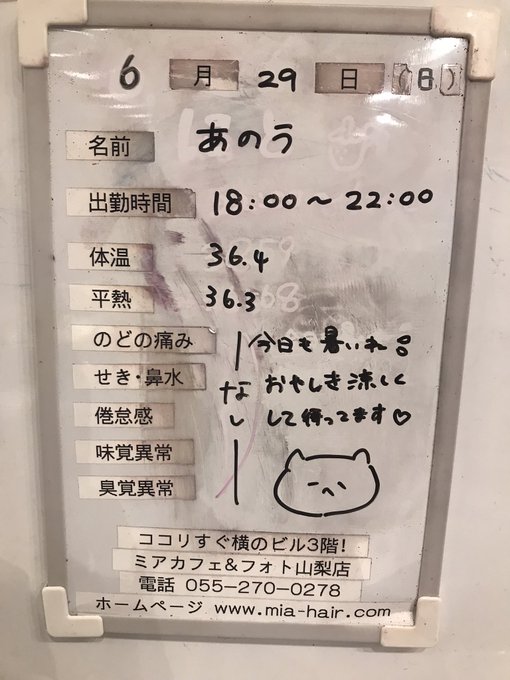 6月29日(日)
名前 あのう
出勤時間 18:00〜22:00
体温 36.4
平熱 36.3
のどの痛み
せき・鼻水
倦怠感
味覚異常
臭覚異常
なし
今日も暑いね!
おやしき涼しく
して待ってます♡
ココリすぐ横のビル3階!
ミアカフェ&フォト山梨店
電話 055-270-0278
ホームページ www.mia-hair.com